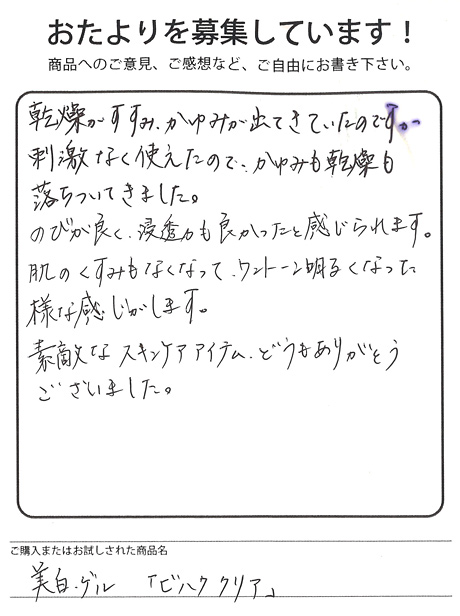 おたよりを募集しています！
商品へのご意見、ご感想など、ご自由にお書き下さい。
乾燥がすすみ、かゆみが出てきていたのですが
刺激なく使えたので、かゆみも乾燥も
落ちついてきました。
のびが良く、浸透力も良かったと感じられます。
肌のくすみもなくなって、ワントーン明るくなった
様な感じがします。
素敵なスキンケアアイテム、どうもありがとう
ございました。
ご購入またはお試しされた商品名
美白・ゲル 「ビハククリア」